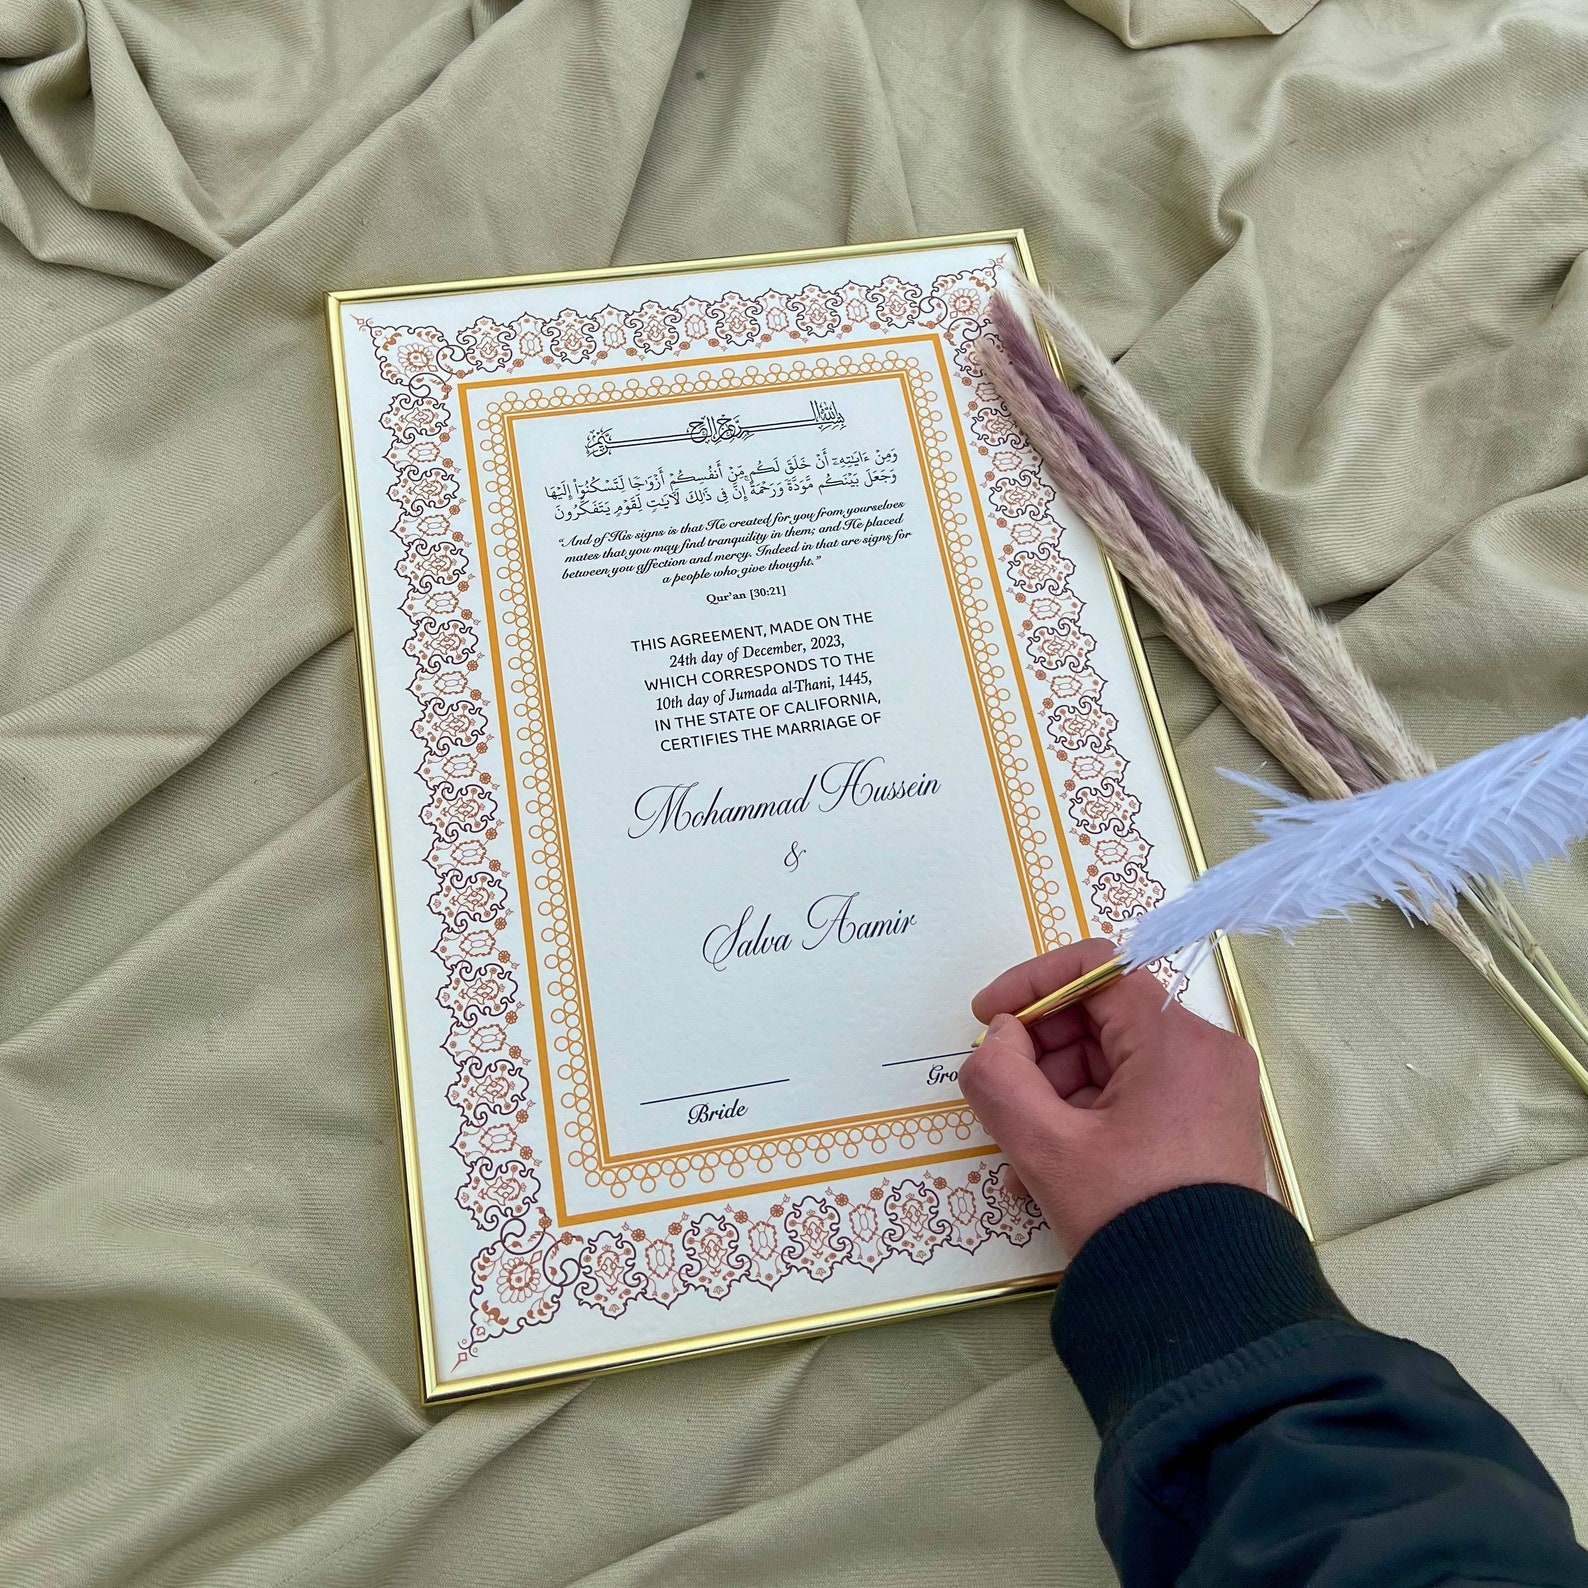 بسم الله الرحمن الرحيم
وَمِنْ ءَايَٰتِهِۦٓ أَنْ خَلَقَ لَكُم مِّنْ أَنفُسِكُمْ أَزْوَٰجًا لِّتَسْكُنُوٓا۟ إِلَيْهَا
وَجَعَلَ بَيْنَكُم مَّوَدَّةً وَرَحْمَةً ۚ إِنَّ فِى ذَٰلِكَ لَءَايَٰتٍ لِّقَوْمٍ يَتَفَكَّرُونَ
“And of His signs is that He created for you from yourselves
mates that you may find tranquility in them; and He placed
between you affection and mercy. Indeed in that are signs for
a people who give thought.”
Qur’an [30:21]
THIS AGREEMENT, MADE ON THE
24th day of December, 2023,
WHICH CORRESPONDS TO THE
10th day of Jumada al-Thani, 1445,
IN THE STATE OF CALIFORNIA,
CERTIFIES THE MARRIAGE OF
Mohammad Hussein
&
Salva Aamir
Bride
Gro